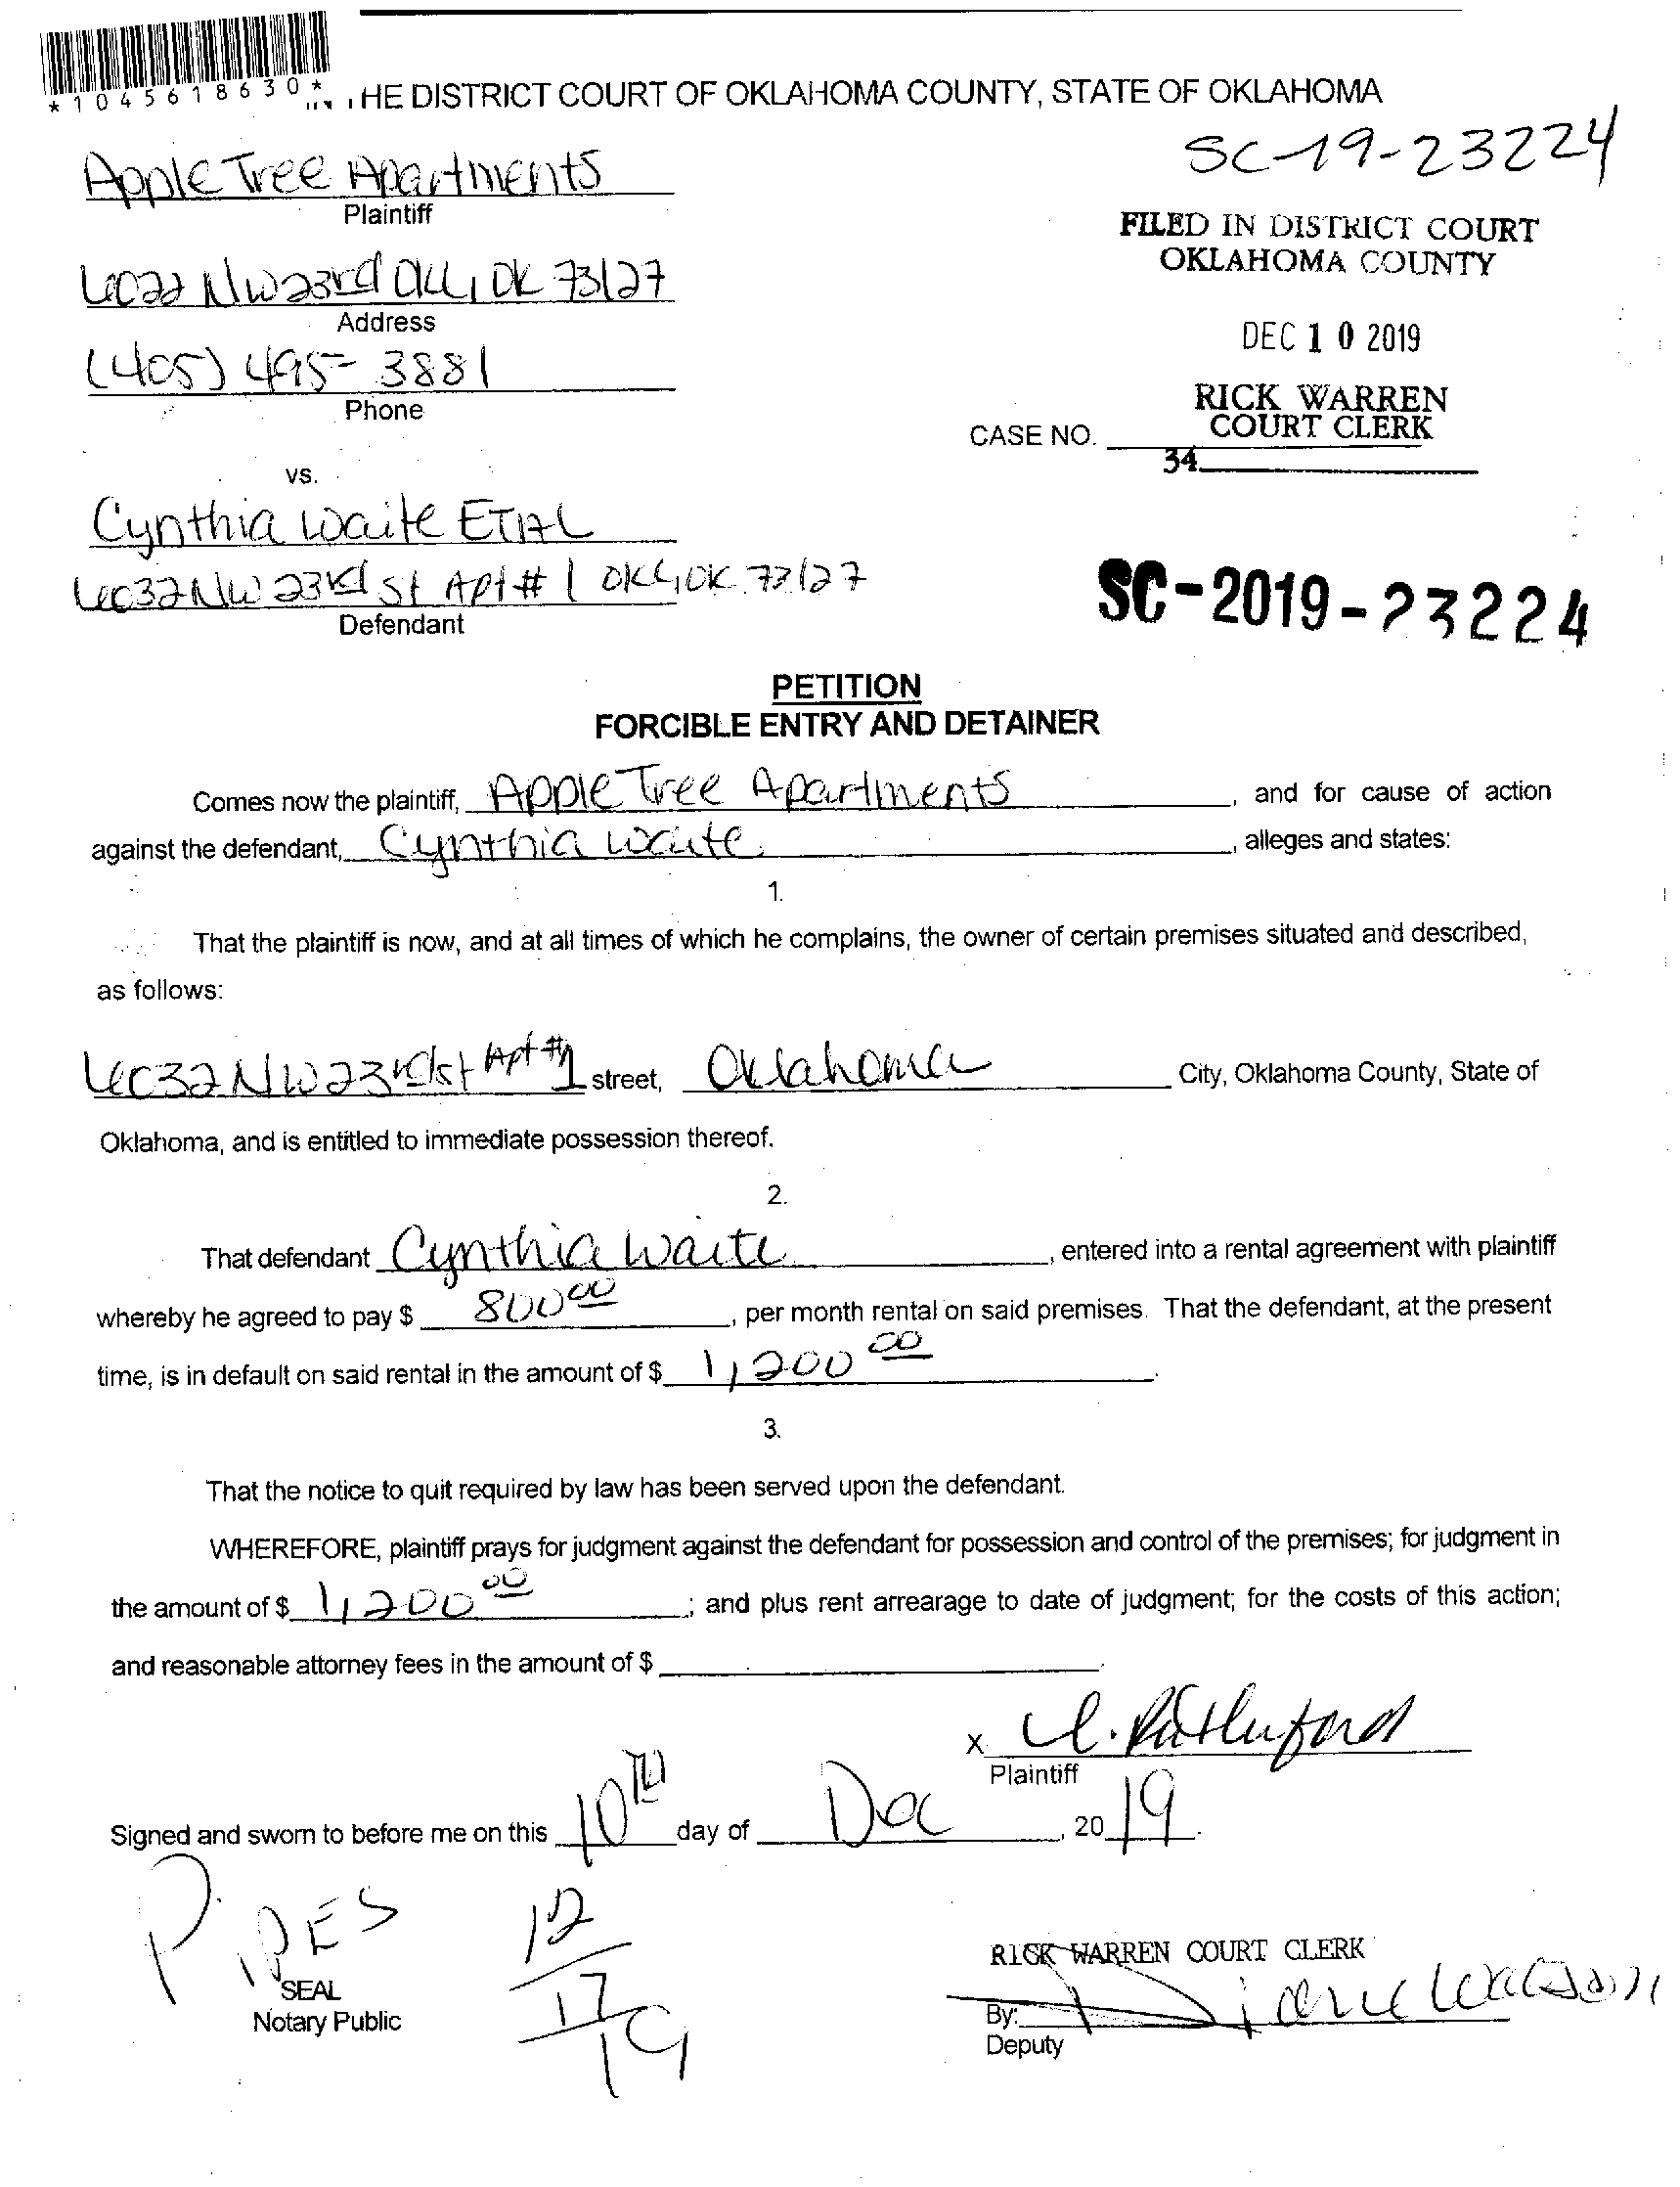 *1045618630*
HE DISTRICT COURT OF OKLAHOMA COUNTY, STATE OF OKLAHOMA
SC-19-23224
Apple Tree Apartments
Plaintiff
FILED IN DISTRICT COURT
OKLAHOMA COUNTY
6022 NW 23rd OKC, OK 73127
Address
DEC 10 2019
(405) 495-3881
Phone
RICK WARREN
COURT CLERK
CASE NO.
34
vs.
Cynthia Waite ETAL
6032 NW 23rd St Apt # 1 OKC, OK. 73127
Defendant
SC-2019-23224
PETITION
FORCIBLE ENTRY AND DETAINER
Comes now the plaintiff, Apple Tree Apartments, and for cause of action
against the defendant, Cynthia Waite, alleges and states:
1.
That the plaintiff is now, and at all times of which he complains, the owner of certain premises situated and described,
as follows:
6032 NW 23rd st Apt #1 street, Oklahoma City, Oklahoma County, State of
Oklahoma, and is entitled to immediate possession thereof.
2.
That defendant Cynthia Waite, entered into a rental agreement with plaintiff
whereby he agreed to pay $ 800 00, per month rental on said premises. That the defendant, at the present
time, is in default on said rental in the amount of $ 1,200 00.
3.
That the notice to quit required by law has been served upon the defendant.
WHEREFORE, plaintiff prays for judgment against the defendant for possession and control of the premises; for judgment in
the amount of $ 1,200 00; and plus rent arrearage to date of judgment; for the costs of this action;
and reasonable attorney fees in the amount of $
x Rutherford
Plaintiff
Signed and sworn to before me on this 10TH day of Dec, 2019.
PIPES
12/17/19
SEAL
Notary Public
RICK WARREN COURT CLERK
By: Diane Watson
Deputy